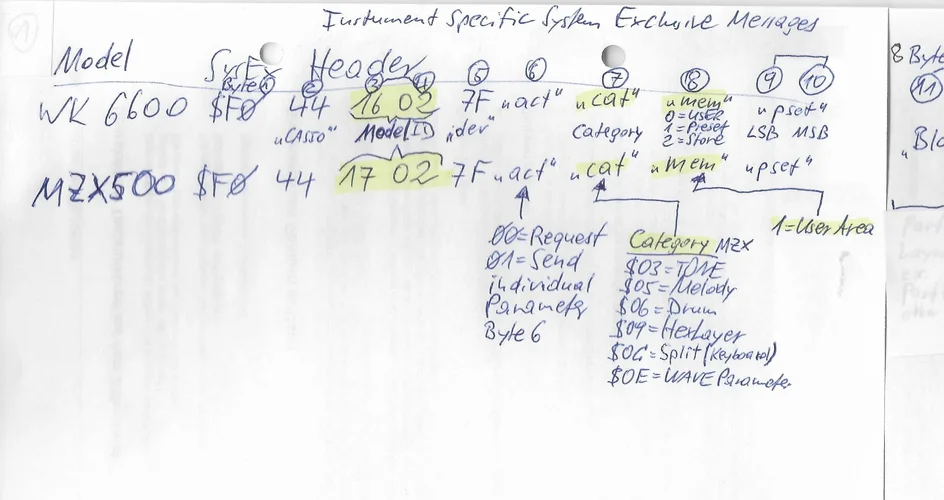 1
Instrument Specific System Exclusive Messages
Model SysEx Header 8 Byte
Byte 1 2 3 4 5 6 7 8 9 10 11
WK 6600 $F0 44 16 02 7F „act“ „cat“ „mem“ „pset“
„CASIO“ Model ID „dev“ Category 0=USER LSB MSB
1=Preset
2=Store
MZX500 $F0 44 17 02 7F „act“ „cat“ „mem“ „pset“
00=Request
01=Send
individual
Parameter
Byte 6
Category MZX
$03=TONE
$05=Melody
$06=Drum
$09=HexLayer
$0C=Split(Keyboard)
$0E=WAVE Parameter
1=User Area